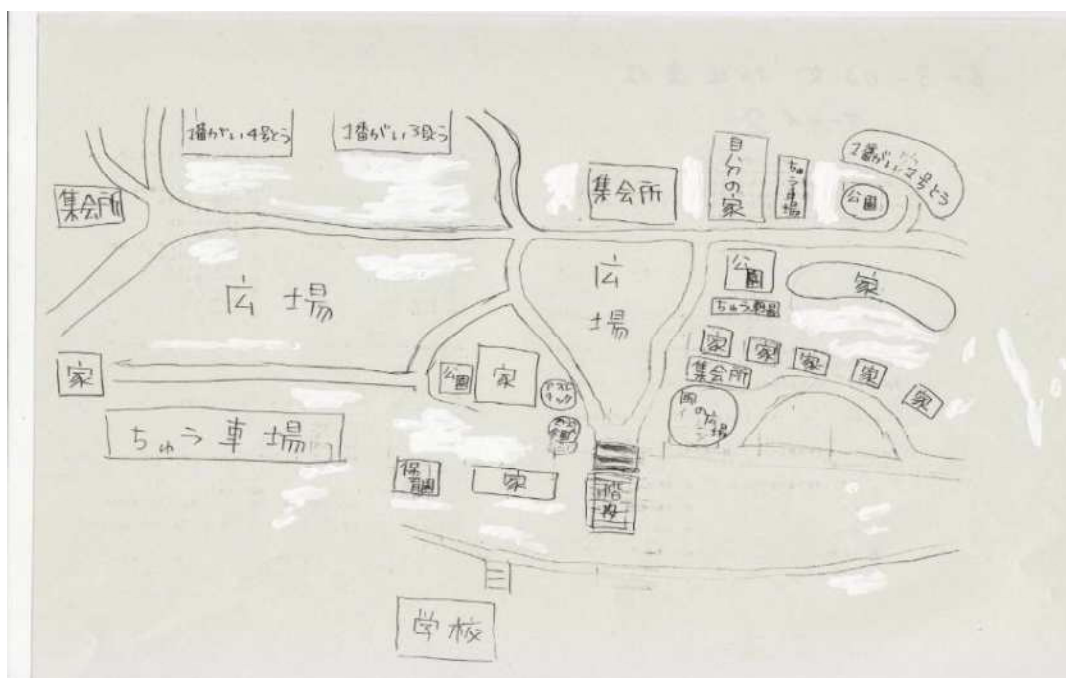 1番がい4号とう
1番がい3号とう
集会所
集会所
自分の家
ちゅう車場
1番がい2号とう
公園
広場
広場
公園
家
ちゅう車場
家
家
家
家
家
家
集会所
公園
家
アスレチック
の広場
ちゅう車場
保育園
家
階段
学校